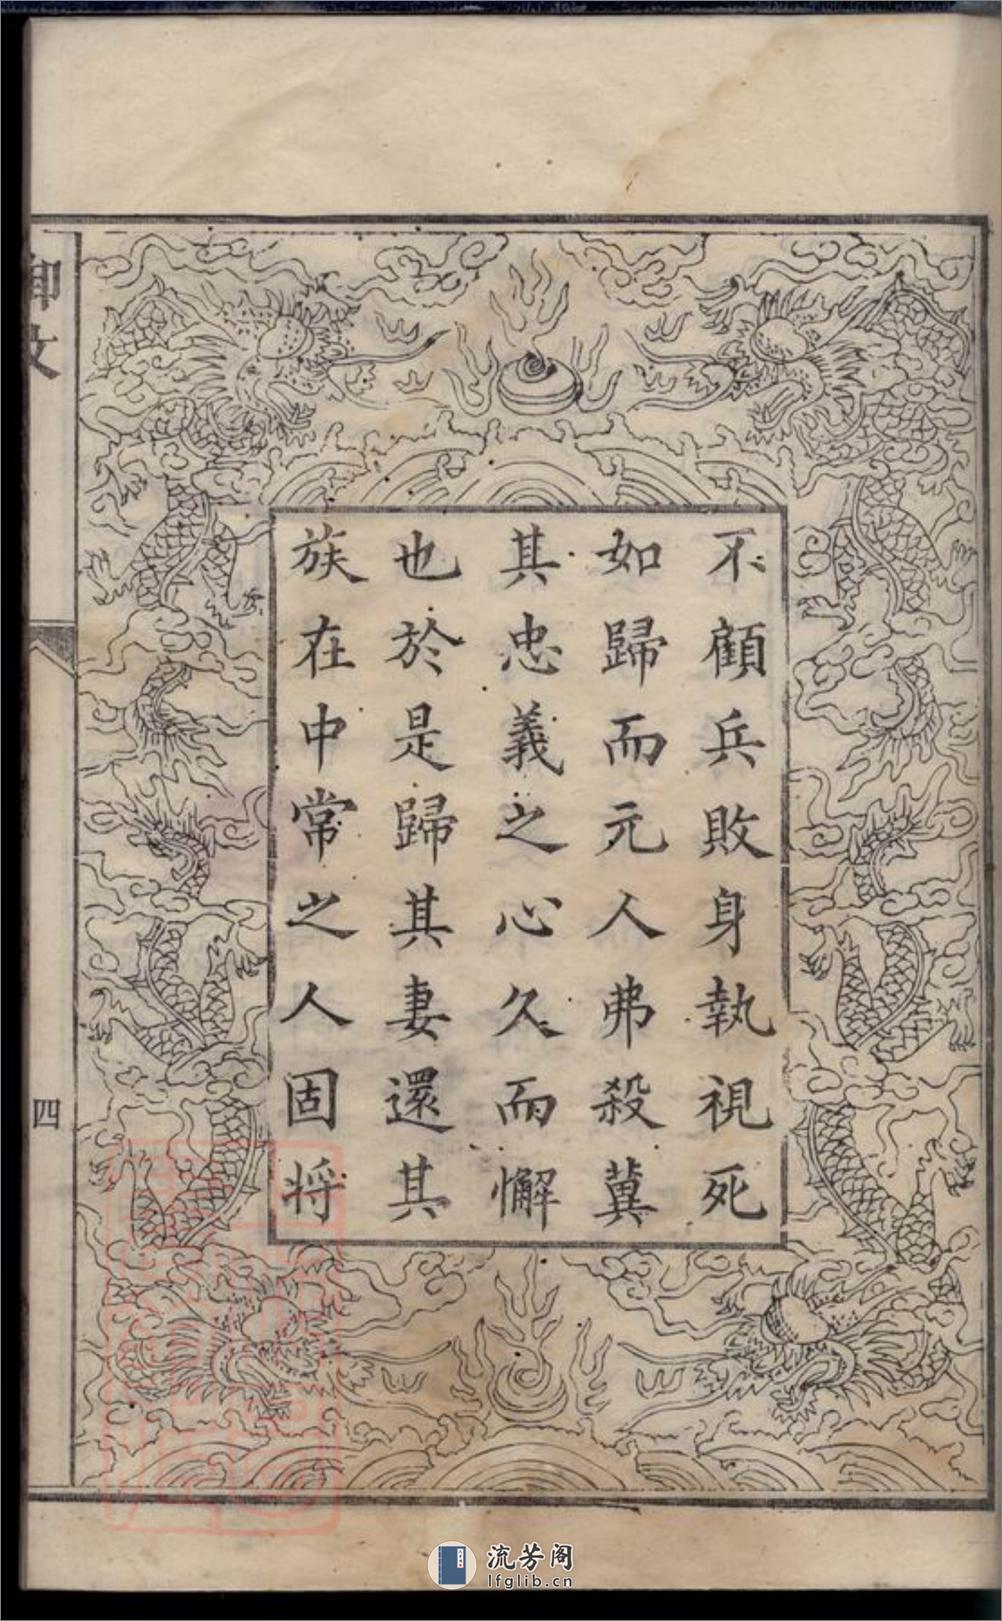 不顧兵敗身執視死
如歸而元人弗殺冀
其忠義之心久而懈
也於是歸其妻還其
族在中常之人固將
御文
四
流芳阁
lfglib.cn